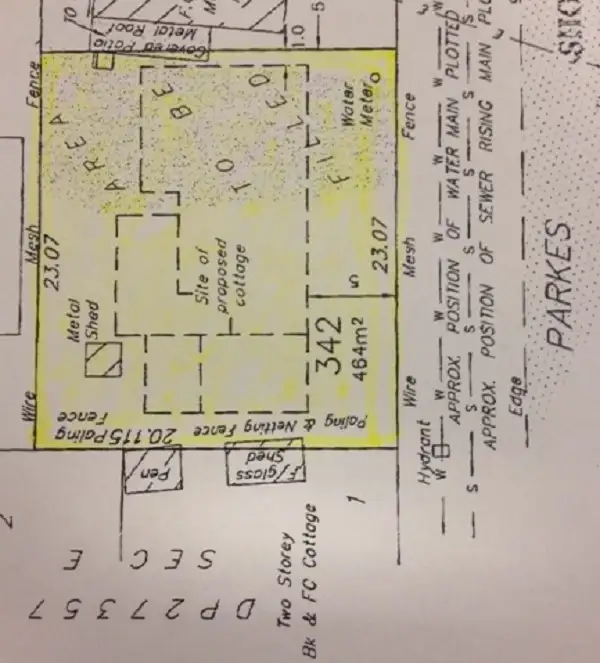 TO
Metal Roof
Covered Patio
1.0
5
Fence
AREA
TO BE
FILLED
Water
Meter
Fence
W W PLOTTED
S MAIN
SHO
Mesh
23.07
Metal
Shed
Site of
proposed
cottage
5
23.07
Mesh
342
464m²
Wire
20.115 Paling
Fence
Paling & Netting Fence
Wire
Pen
F/glass
Shed
Hydrant
W W APPROX. POSITION OF WATER MAIN PLOTTED
S S APPROX. POSITION OF SEWER RISING MAIN
Edge
PARKES
2
1
SEC E
DP 27357
Two Storey
Bk & FC Cottage